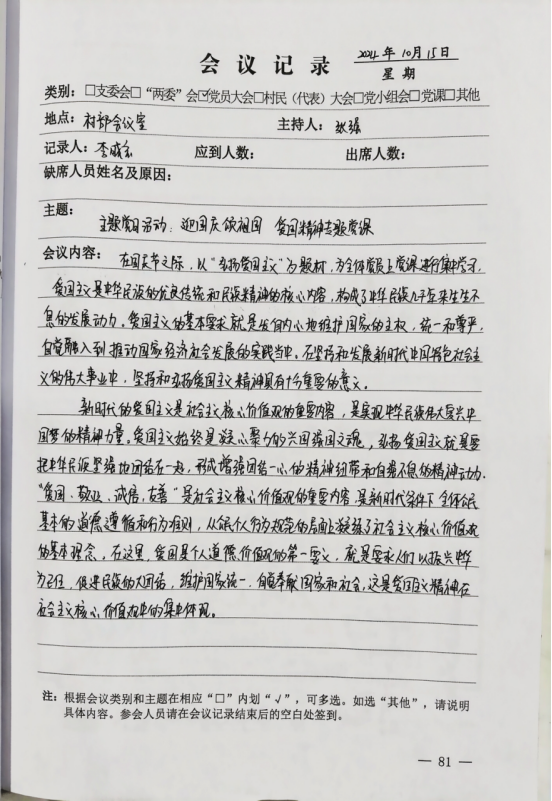 2024年10月15日
会议记录 星期
类别：□支委会□“两委”会☑党员大会□村民（代表）大会□党小组会□党课□其他
地点：村部会议室 主持人：张强
记录人：李 应到人数： 出席人数：
缺席人员姓名及原因：
主题：
主题党日活动：迎国庆颂祖国 爱国精神专题党课
会议内容：在国庆节之际，以“弘扬爱国主义”为题材，为全体党员上党课进行集中学习，
爱国主义是中华民族的优良传统和民族精神的核心内容，构成了中华民族几千年来生生不
息的发展动力。爱国主义的基本要求就是发自内心地维护国家的主权，统一和尊严，
自觉融入到推动国家经济社会发展的实践当中。在坚持和发展新时代中国特色社会主
义的伟大事业中，坚持和弘扬爱国主义精神具有十分重要的意义。
新时代的爱国主义是社会主义核心价值观的重要内容，是实现中华民族伟大复兴中
国梦的精神力量。爱国主义始终是凝心聚力的兴国强国之魂，弘扬爱国主义就是要
把中华民族坚强地团结在一起，形成增强团结一心的精神纽带和自强不息的精神动力.
“爱国、敬业、诚信、友善”是社会主义核心价值观的重要内容，是新时代条件下全体公民
基本的道德遵循和行为准则，从公民个人行为规范的层面上凝练了社会主义核心价值观
的基本理念。在这里，爱国是个人道德价值观的第一要义，就是要求人们以振兴中华
为己任，促进民族的大团结，维护国家统一，自觉奉献国家和社会，这是爱国主义精神在
社会主义核心价值观中的集中体现。
注：根据会议类别和主题在相应“□”内划“√”，可多选。如选“其他”，请说明
具体内容。参会人员请在会议记录结束后的空白处签到。
— 81 —